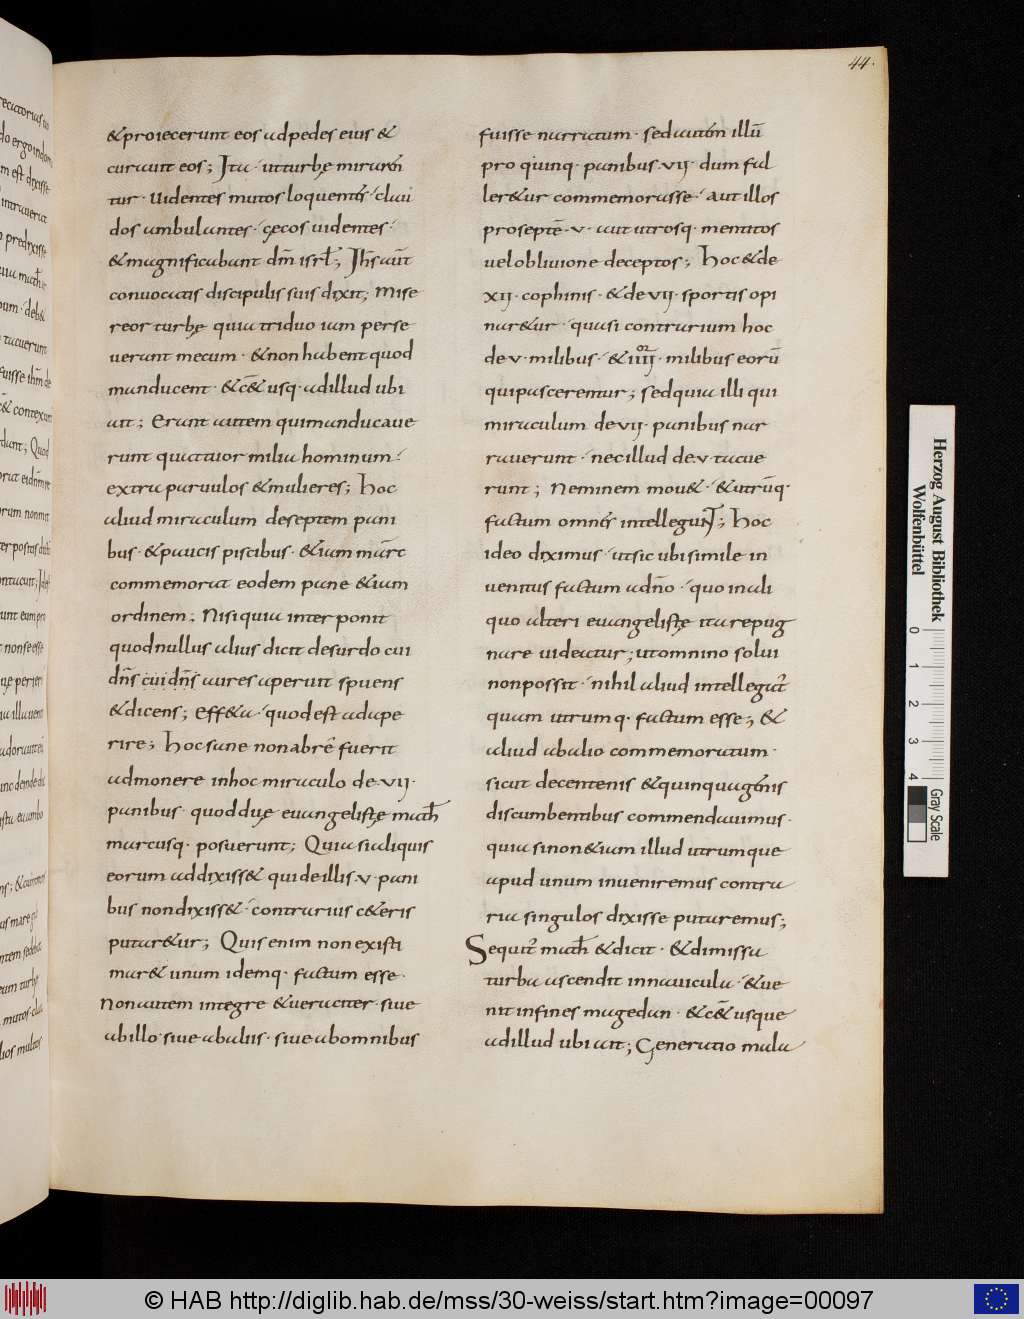 44.
& proiecerunt eos ad pedes eius &
curauit eos; Ita · ut turbę mirarēn
tur · Uidentes mutos loquentes · clau
dos ambulantes · cęcos uidentes ·
& magnificabant dm̄ isrl̄; Ihs̄ aut̄
conuocatis discipulis suis dixit; Mise
reor turbę quia triduo iam perse
uerant mecum · & non habent quod
manducent · & c̄& usq· ad illud ubi
ait; Erant autem qui manducaue
runt quattuor milia hominum ·
extra paruulos & mulieres; Hoc
aliud miraculum de septem pani
bus · & paucis piscibus · & iam mārc
commemorat eodem pane & iam
ordinem; Nisi quia inter ponit
quod nullus alius dicit de surdo cui
dn̄s cui dn̄s aures aperuit spuens
& dicens; Effeta · quod est adape
rire; Hoc sane non ab re fuerit
admonere in hoc miraculo de · vii ·
panibus · quod duę euangelistę math̄
marcusq· posuerunt; Quia si aliquis
eorum ad dixiss& qui de illis · v · pani
bus non dixiss& · contrarius c&eris
putar&ur; Quis enim non existi
mar& unum idemq· factum esse ·
Non autem integre & ueraciter · siue
ab illo · siue ab aliis · siue ab omnibus
fuisse narratum · sed aut̄em illū
pro quinq· panibus · vii · dum fal
ler&ur commemorasse · aut illos
pro septē · v · aut utrosq· mentitos
uel obliuione deceptos; Hoc & de
xii · cophinis · & de vii · sportis opi
nar&ur · quasi contrarium hoc
de · v · milibus · & iiii or · milibus eorū
qui pascerentur; sed quia illi qui
miraculum de vii · panibus nar
rauerunt · nec illud de · v · tacue
runt; Neminem mou& · & utrūq·
factum omnes intellegunt; Hoc
ideo diximus · ut sic ubi simile in
uentus factum a dn̄o · quo in ali
quo alteri euangelistę ita repug
nare uideatur; ut omnino solui
non possit · nihil aliud intellegat̄
quam utrumq· factum esse; &
aliud ab alio commemoratum ·
sicut de centenis & quinquagenis
discumbentibus commendauimus ·
quia si non &iam illud utrumque
apud unum inueniremus contra
ria singulos dixisse putaremus;
Sequit̄ math̄ & dicit · & dimissa
turba ascendit in nauicula · & ue
nit in fines magedan · & c̄& usque
ad illud ubi ait; Generatio mala
Herzog August Bibliothek
Wolfenbüttel
0 1 2 3 4
Gray Scale
© HAB http://diglib.hab.de/mss/30-weiss/start.htm?image=00097